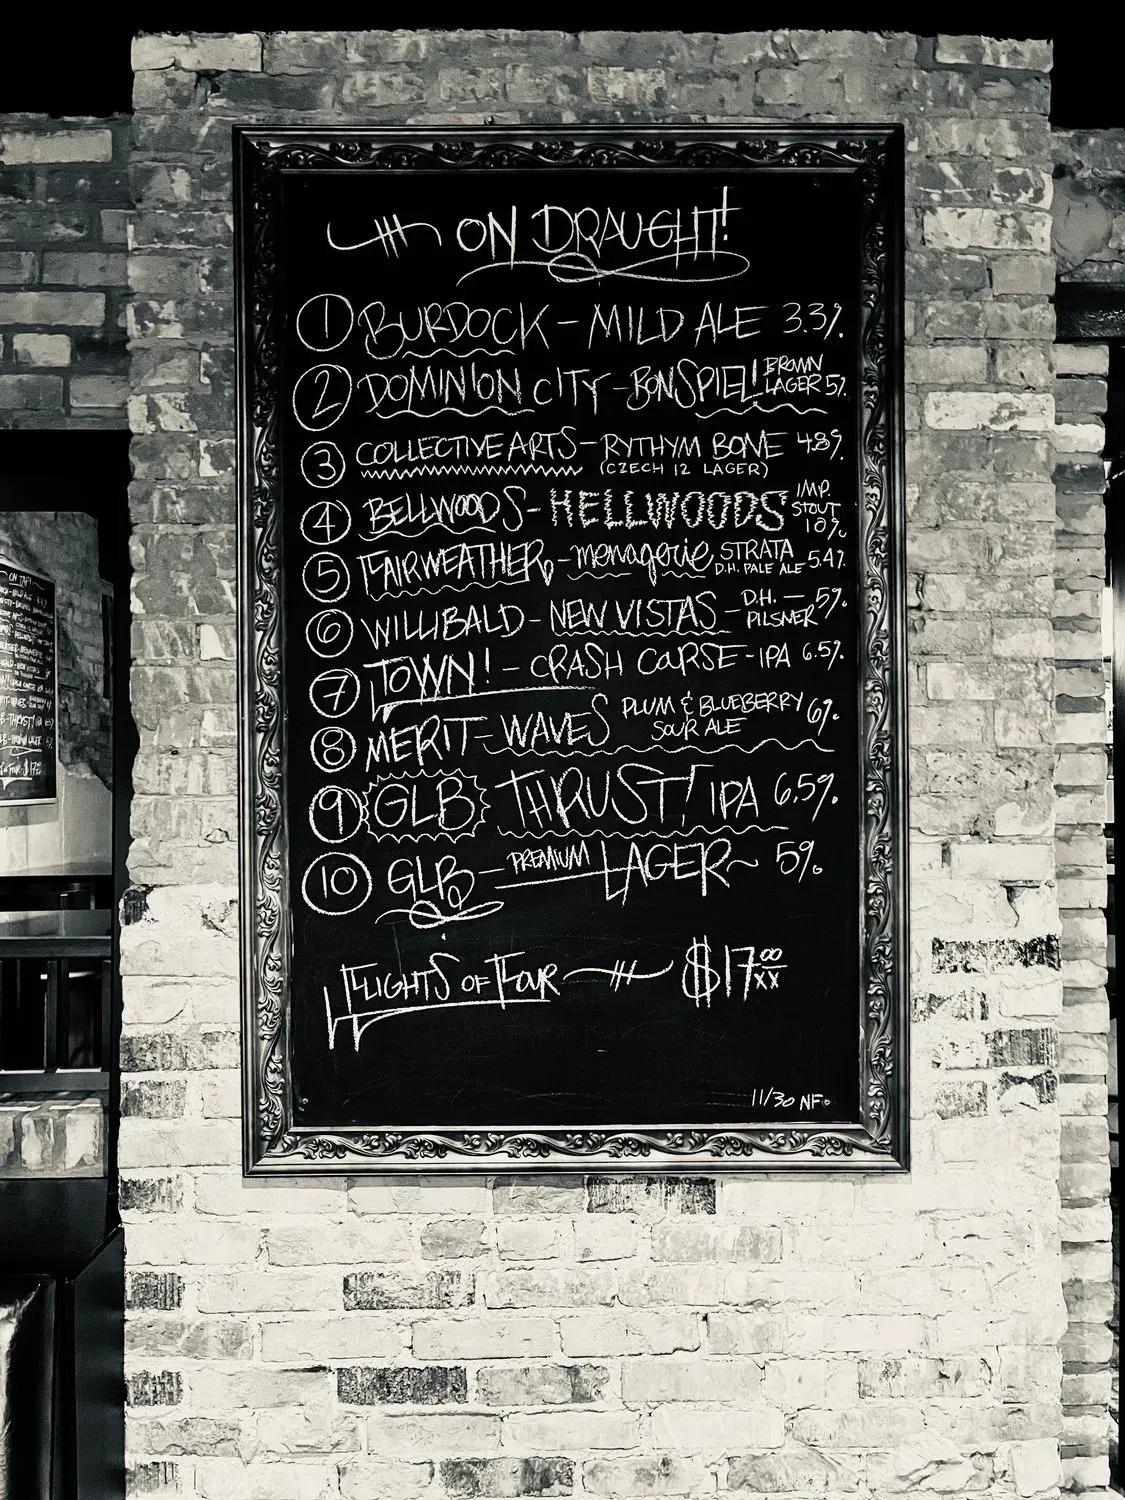 ON DRAUGHT!
1 BURDOCK - MILD ALE 3.3%.
2 DOMINION CITY - BONSPIEL! BROWN LAGER 5%.
3 COLLECTIVE ARTS - RYTHYM BONE 4.8%.
(CZECH 12 LAGER)
4 BELLWOODS - HELLWOODS IMP. STOUT 10%.
5 FAIRWEATHER - menagerie, STRATA D.H. PALE ALE 5.4%.
6 WILLIBALD - NEW VISTAS - D.H. - PILSNER 5%.
7 TOWN! - CRASH COURSE - IPA 6.5%.
8 MERIT - WAVES PLUM & BLUEBERRY SOUR ALE 6%.
9 GLB THRUST! IPA 6.5%.
10 GLB - PREMIUM LAGER ~ 5%.
FLIGHTS OF FOUR $17 00/XX
11/30 NF.